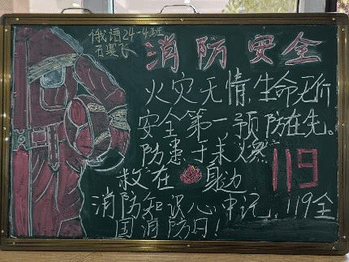 俄语24-4班
消防安全
火灾无情,生命无价
安全第一,预防在先。
防患于未燃
救在身边
119
消防知识心中记,119全
国消防日!